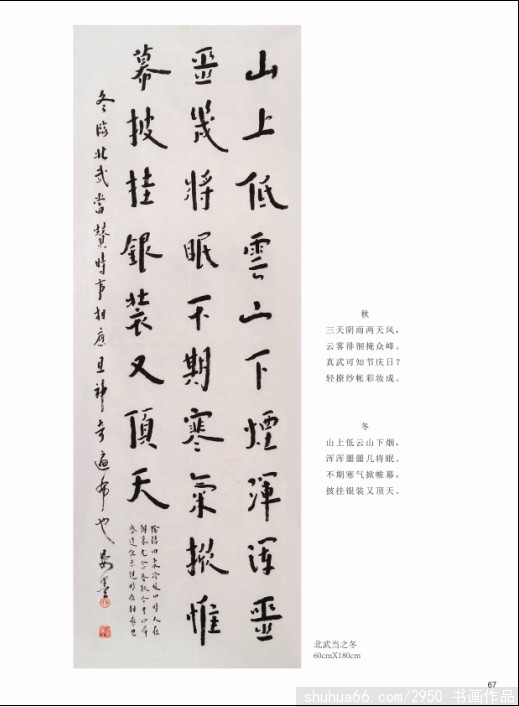 山上低雲山下煙渾渾噩
噩幾將眠不期寒氣掀帷
幕披挂銀裝又頂天
冬臨北武當贊時事相應且神奇遍布也
秋
三天阴雨两天风，
云雾徘徊掩众峰。
真武可知节庆日？
轻撩纱帐彩妆成。
冬
山上低云山下烟，
浑浑噩噩几将眠。
不期寒气掀帷幕，
披挂银装又顶天。
北武当之冬
60cmX180cm
67
shuhua66.com/2950 书画作品